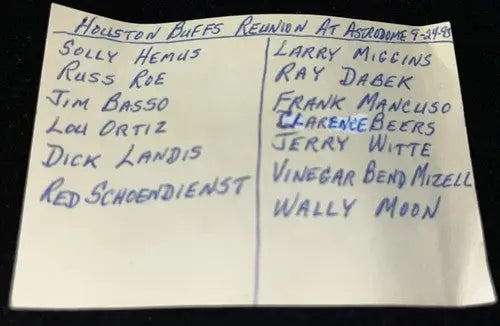 HOUSTON BUFFS REUNION AT ASTRODOME 9-24-95
SOLLY HEMUS
RUSS ROE
JIM BASSO
LOU ORTIZ
DICK LANDIS
RED SCHOENDIENST
LARRY MIGGINS
RAY DABEK
FRANK MANCUSO
CLARENCE BEERS
JERRY WITTE
VINEGAR BEND MIZELL
WALLY MOON